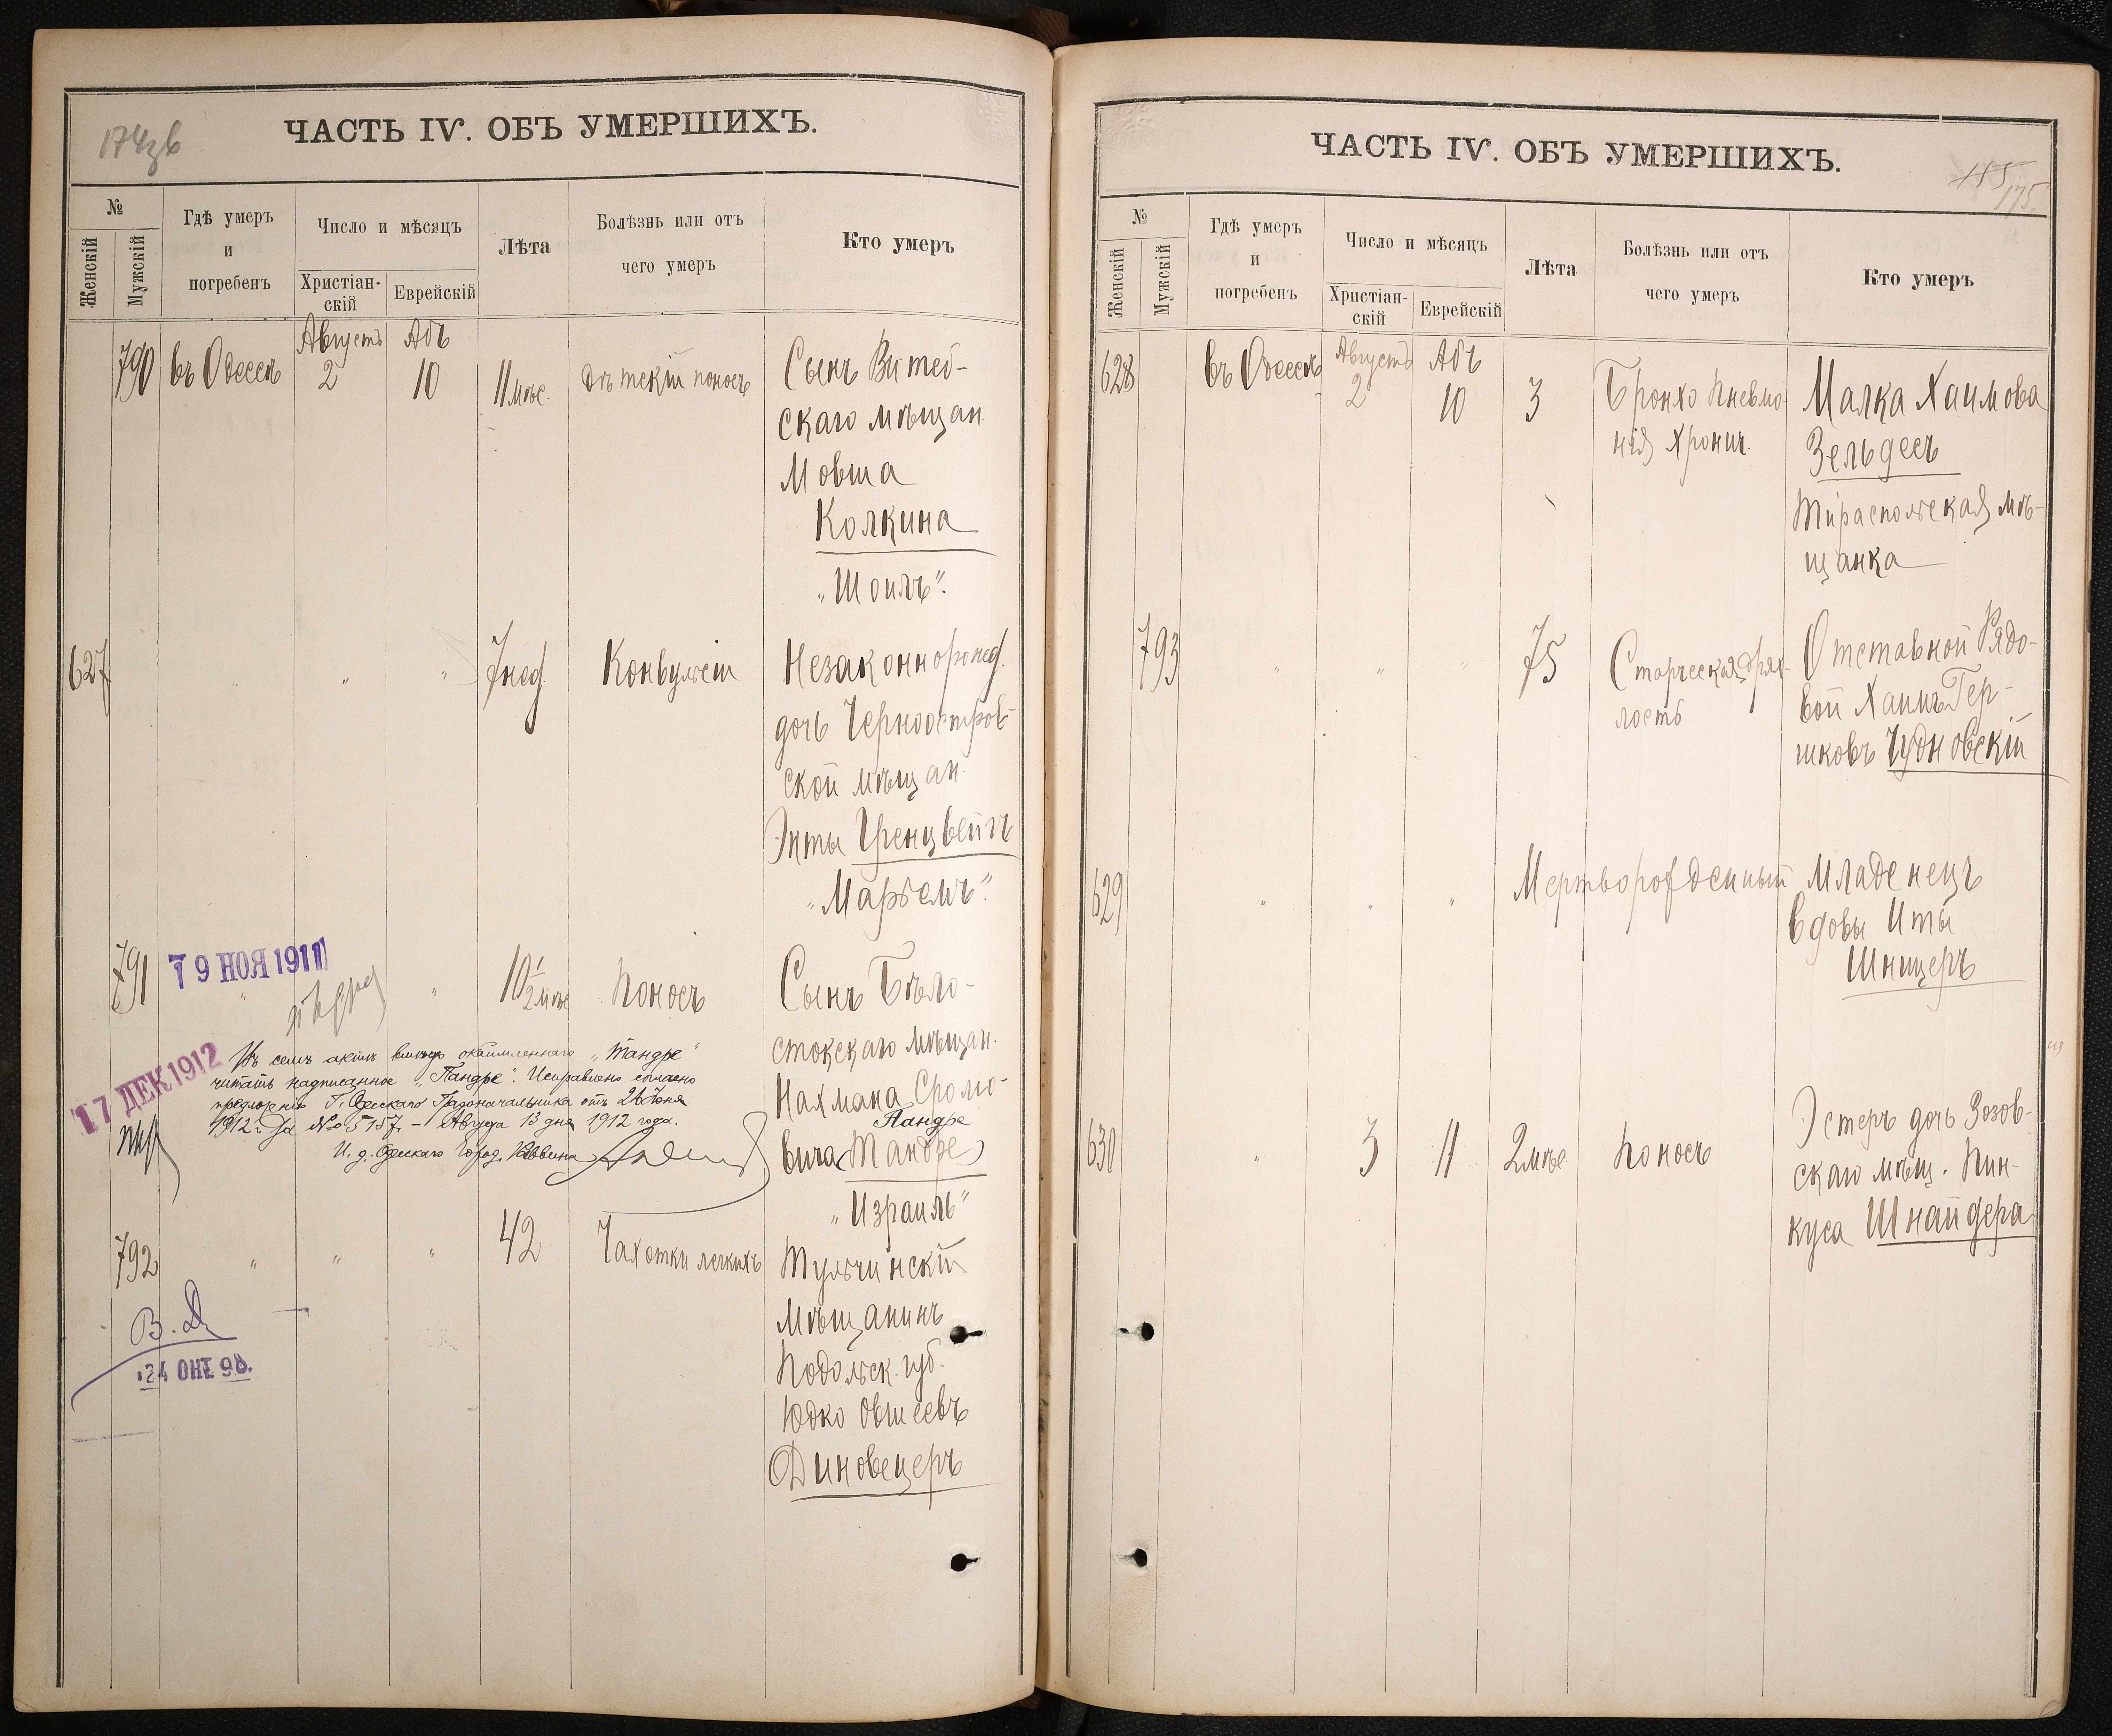 174об
ЧАСТЬ IV. ОБЪ УМЕРШИХЪ.
№
Женскій
Мужскій
Гдѣ умеръ
и
погребенъ
Число и мѣсяцъ
Христіан-
скій
Еврейскій
Лѣта
Болѣзнь или отъ
чего умеръ
Кто умеръ
790 въ Одессѣ Августъ 2 Абъ 10 11 мѣс. Дѣтскій поносъ Сынъ Витеб-
скаго мѣщан.
Мовша
Колкина
„Шоилъ".
627 " " " 7 нед. Конвульсіи Незаконнорожд.
дочь Черноостров-
ской мѣщан.
Энты Гренцвейгъ
„Марьемъ".
791 " " 10 1/2 мѣс Поносъ Сынъ Бѣло-
стокскаго мѣщан.
Нахмана Сролю-
Пандре
вича (Тандре)
„Израиль"
19 НОЯ 1911
17 ДЕК 1912
Въ семъ актѣ вмѣсто окаймленнаго „Тандре"
читать надписанное „Пандре". Исправлено согласно
предложенія Г. Одесскаго Градоначальника отъ 26 Іюня
1912 г. За № 5157. – Августа 13 дня 1912 года.
И. д. Одесскаго Город. Раввина
792 " " " 42 Чахотки легкихъ Тульчинскій
мѣщанинъ
Подольск. губ.
Юдко Овшеевъ
Диновецеръ
24 ОКТ 98.
ЧАСТЬ IV. ОБЪ УМЕРШИХЪ.
175.
№
Женскій
Мужскій
Гдѣ умеръ
и
погребенъ
Число и мѣсяцъ
Христіан-
скій
Еврейскій
Лѣта
Болѣзнь или отъ
чего умеръ
Кто умеръ
628 въ Одессѣ Августъ 2 Абъ 10 3 Бронхо Пневмо- Малка Хаимова
нія хронич. Зельдесъ
Тираспольская мѣ-
щанка
793 " " " 75 Старческая дрях- Отставной Рядо-
лость вой Хаимъ Гер-
шковъ Чудновскій
629 " " " Мертворожденный Младенецъ
вдовы Иты
Шницеръ
630 " 3 11 2 мѣс Поносъ Эстеръ дочь Зозов-
скаго мѣщ. Пин-
куса Шнайдера